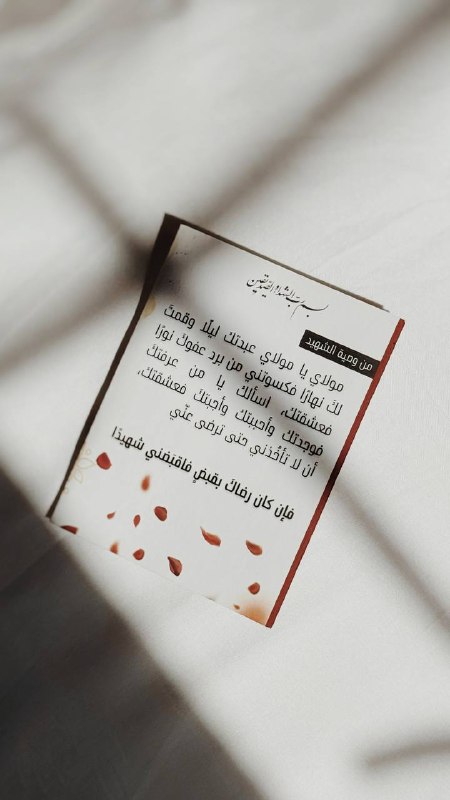 بسم رب الشهداء والصديقين
من وصية الشهيد
مولاي يا مولاي عبدتك ليلًا وقمتُ
لكَ نهارًا فكسوتني من برد عفوكَ نورًا
فعشقتك، اسألك يا من عرفتكَ
فوجدتكَ وأحببتكَ وأحبتكَ فعشقتكَ،
أن لا تأخُذني حتى ترضى عنّي
فإن كان رضاكَ بقبضي فاقبَضني شهيدًا